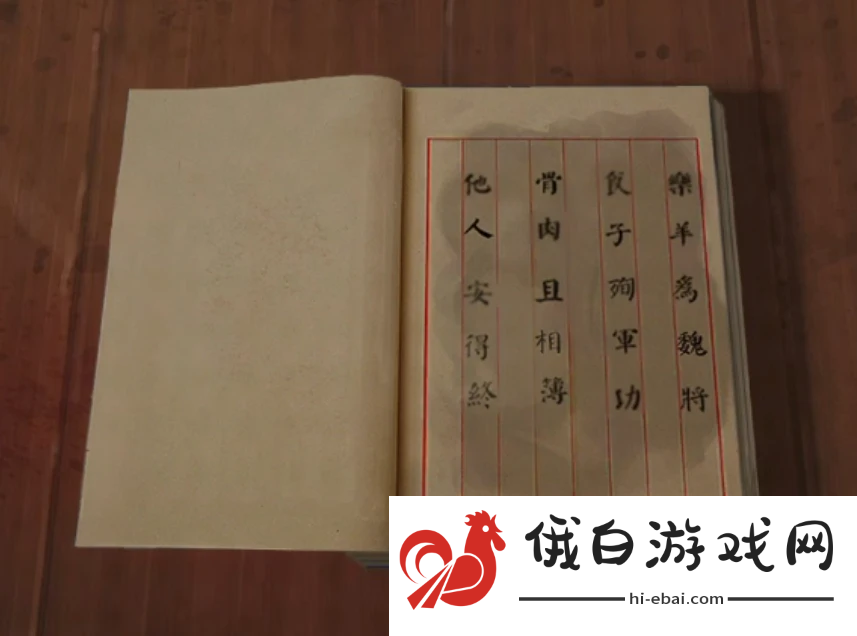 樂羊為魏將
食子殉軍功
骨肉且相薄
他人安得終
俄白游戏网
hi-ebai.com